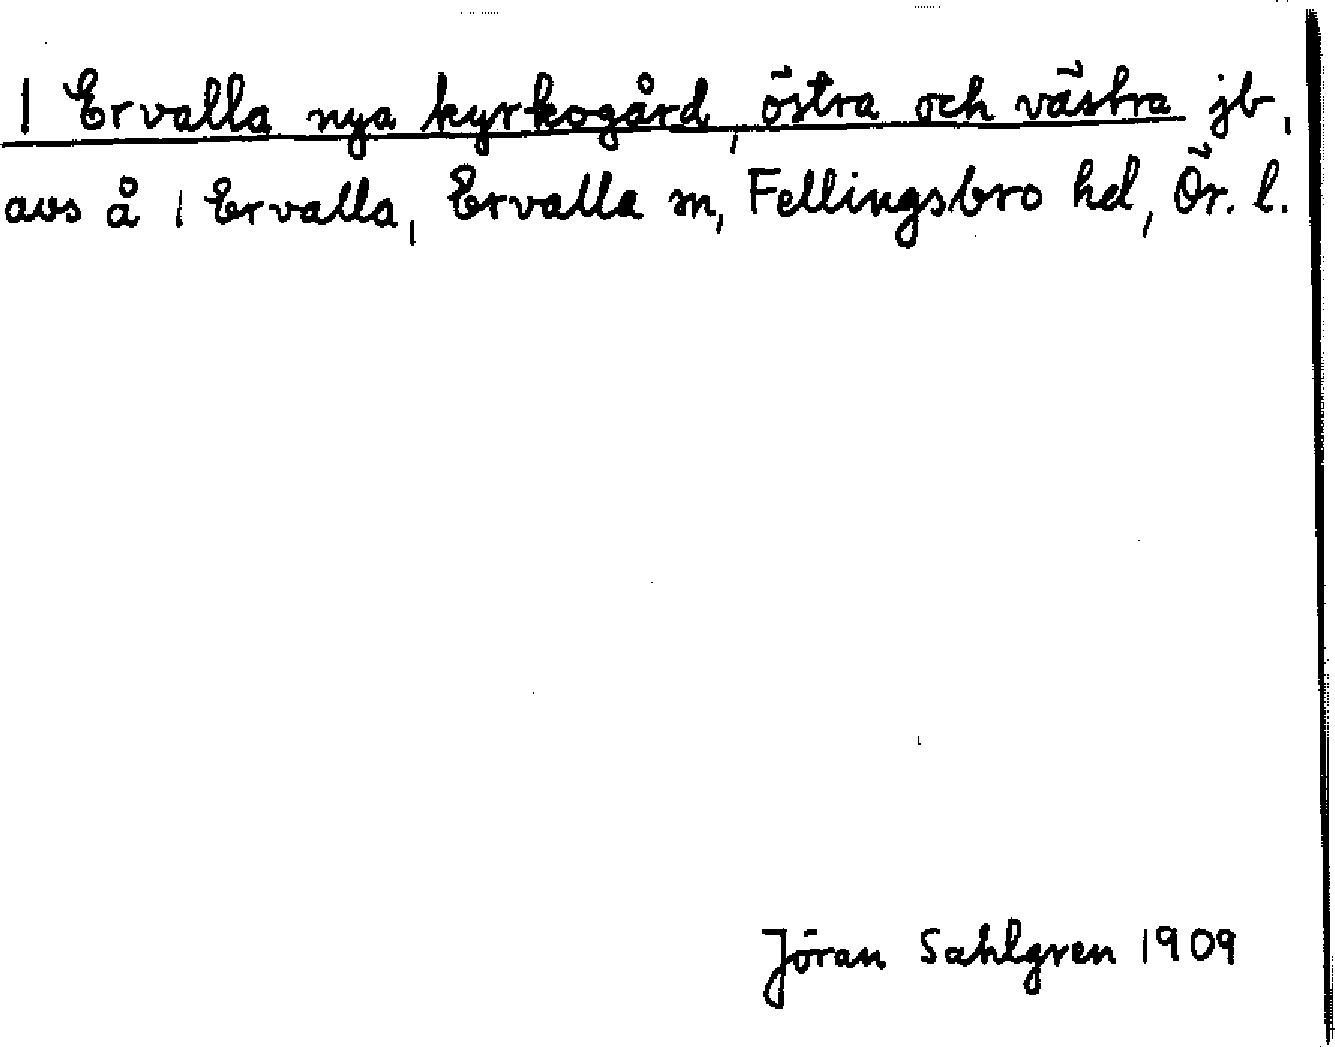 1 Ervalla nya kyrkogård, östra och västra jb,
avs å 1 Ervalla, Ervalla sn, Fellingsbro hd, Ör. l.
Jöran Sahlgren 1909